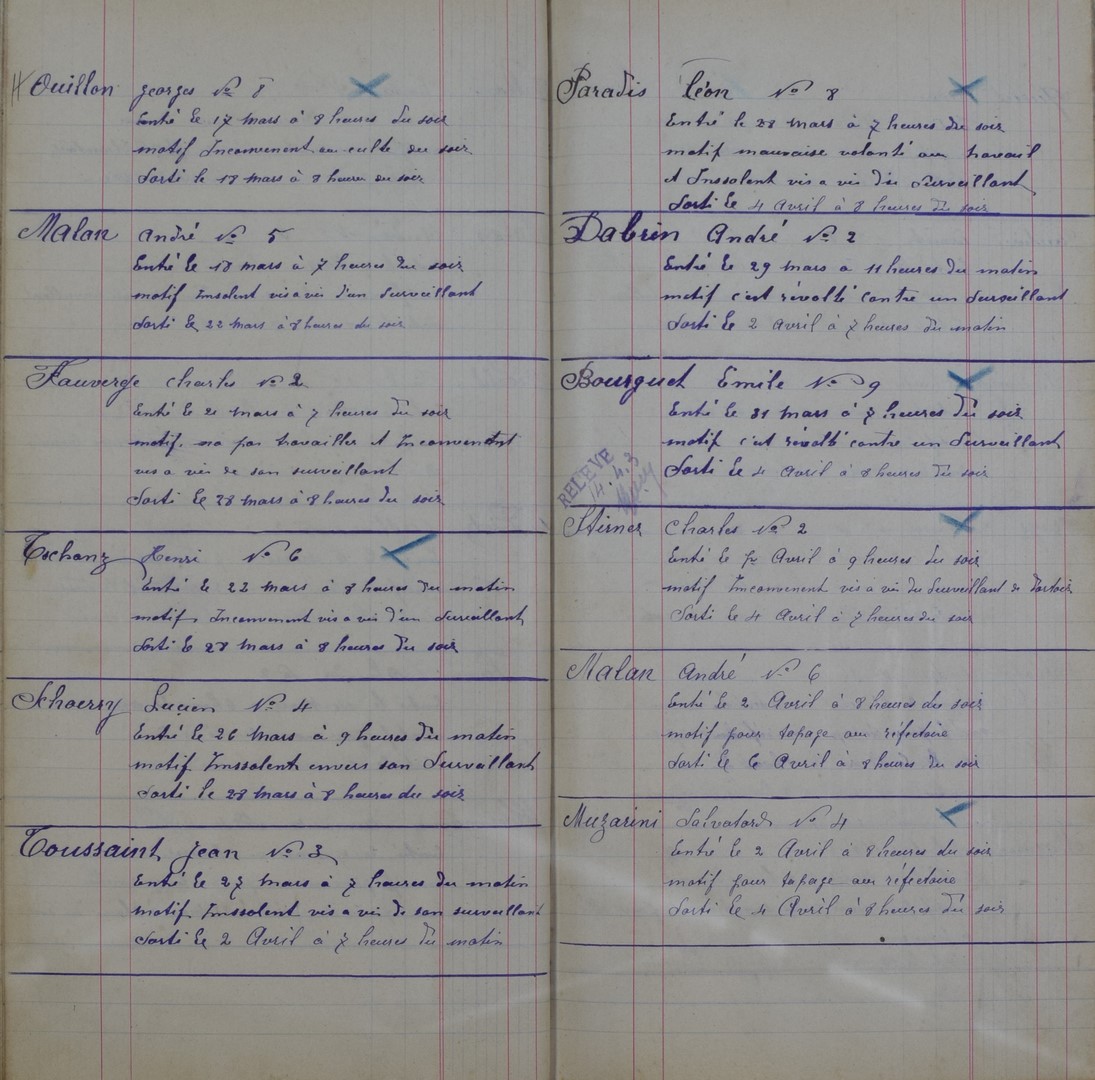 Ouillon georges No 8
Entré le 17 mars à 8 heures du soir
motif Inconvenent au culte du soir
Sorti le 18 mars à 8 heures du soir
Malan André No 5
Entré le 18 mars à 7 heures du soir
motif Insolent vis à vis d'un Surveillant
Sorti le 22 mars à 8 heures du soir
Fauverge Charles No 2
Entré le 21 mars à 7 heures du soir
motif. na pas travailler et Inconvenent
vis a vis de son surveillant
Sorti le 28 mars à 8 heures du soir
Tschanz Henri No 6
Entré le 22 mars à 8 heures du matin
motif Inconvenent vis a vis d'un Surveillant
Sorti le 28 mars à 8 heures du soir
Schoerry Lucien No 4
Entré le 26 mars à 9 heures du matin
motif Inssolent envers son Surveillant
Sorti le 28 mars à 8 heures du soir
Toussaint Jean No 3
Entré le 27 mars à 7 heures du matin
motif Inssolent vis a vis de son surveillant
Sorti le 2 Avril à 7 heures du matin
Paradis Léon No 8
Entré le 28 mars à 7 heures du soir
motif mauvaise volonté au travail
et Inssolent vis a vis du Surveillant
Sorti le 4 Avril à 8 heures du soir
Dabrin André No 2
Entré le 29 mars a 11 heures du matin
motif c'est révolté contre un Surveillant
Sorti le 2 Avril à 7 heures du matin
Bourguet Emile No 9
Entré le 31 mars à 7 heures du soir
motif c'est révolté contre un Surveillant
Sorti le 4 Avril à 8 heures du soir
RELEVÉ
14.4.3
Stirner Charles No 2
Entré le Avril à 9 heures du soir
motif Inconvenent vis à vis du Surveillant de Dortoir
Sorti le 4 Avril à 7 heures du soir
Malan André No 6
Entré le 2 Avril à 8 heures du soir
motif pour tapage au réfectoire
Sorti le 6 Avril à 8 heures du soir
Muzarini Salvatord No 4
Entré le 2 Avril à 8 heures du soir
motif pour tapage au réfectoire
Sorti le 4 Avril à 8 heures du soir